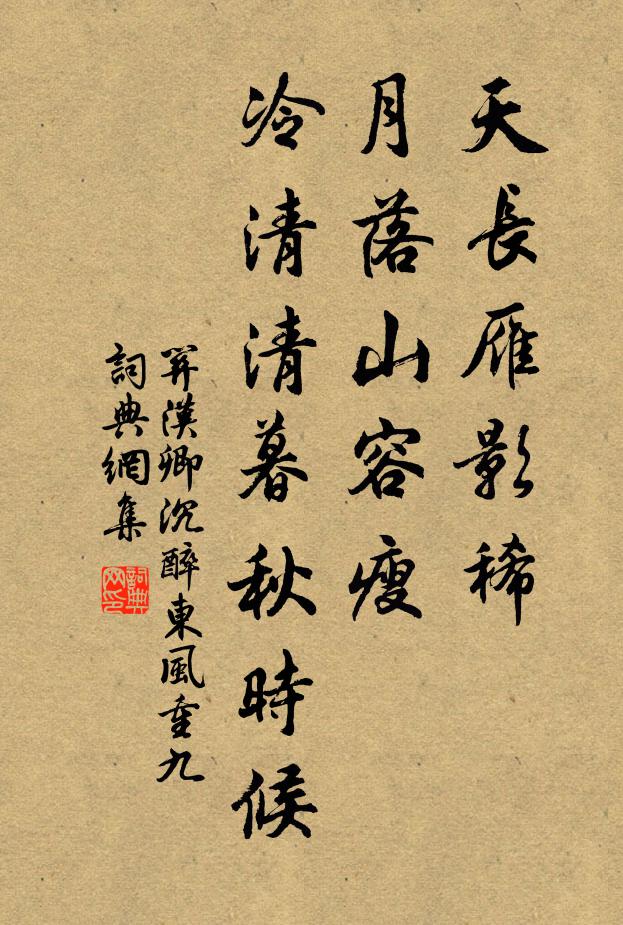 天長雁影稀
月落山容瘦
冷清清暮秋時候
關漢卿沉醉東風重九
詞典網集
詞典网印